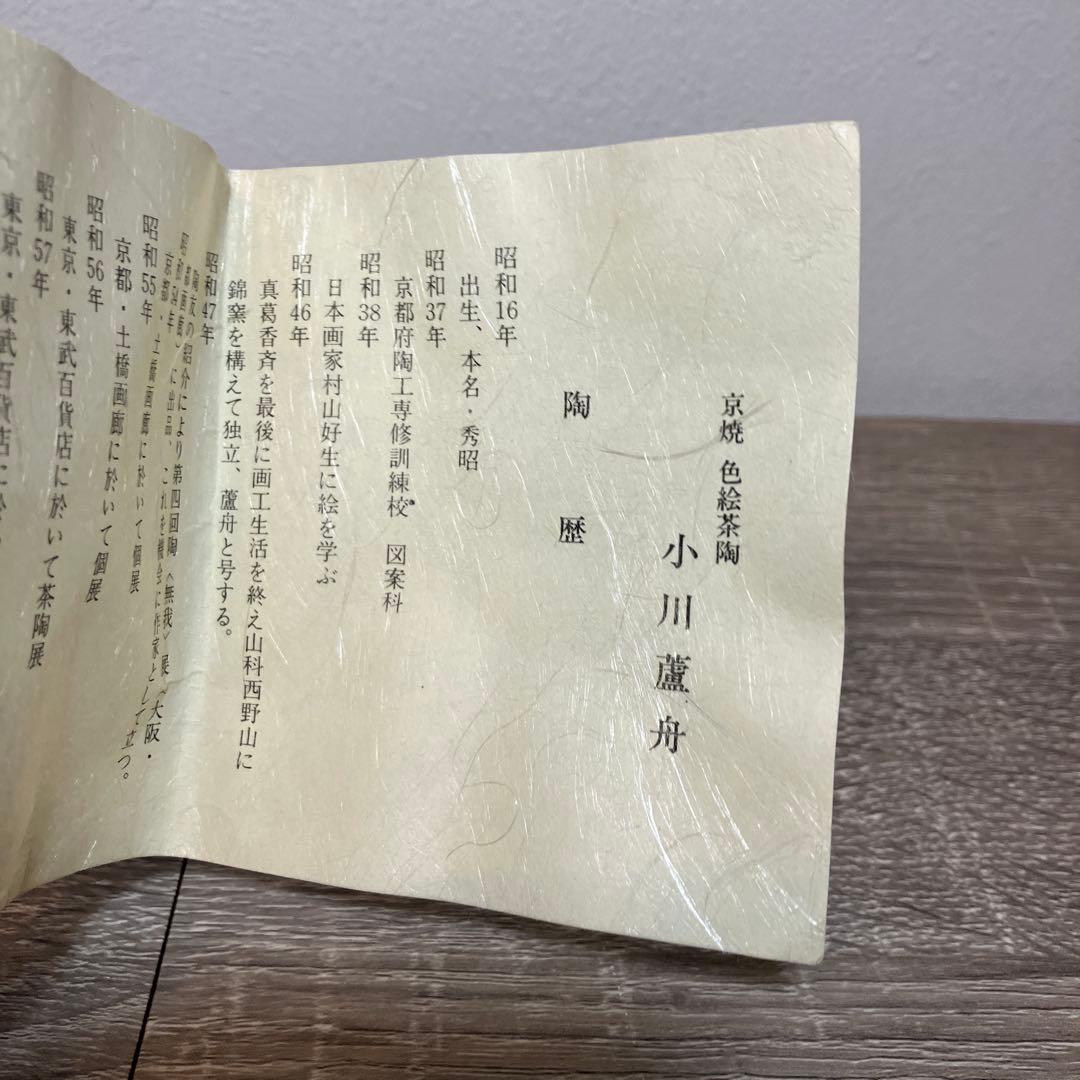 京焼 色絵茶陶
小川蘆舟
陶歴
昭和16年
出生、本名・秀昭
昭和37年
京都府陶工専修訓練校 図案科
昭和38年
日本画家村山好生に絵を学ぶ
昭和46年
真葛香斉を最後に画工生活を終え山科西野山に
錦窯を構えて独立、蘆舟と号する。
昭和47年
陶友の紹介により第四回陶〈無我〉展(大阪・
都画廊)に出品、これを機会に作家として立つ。
昭和54年
京都・土橋画廊に於いて個展
昭和55年
京都・土橋画廊に於いて個展
昭和56年
東京・東武百貨店に於いて茶陶展
昭和57年
東京・東武百貨店に